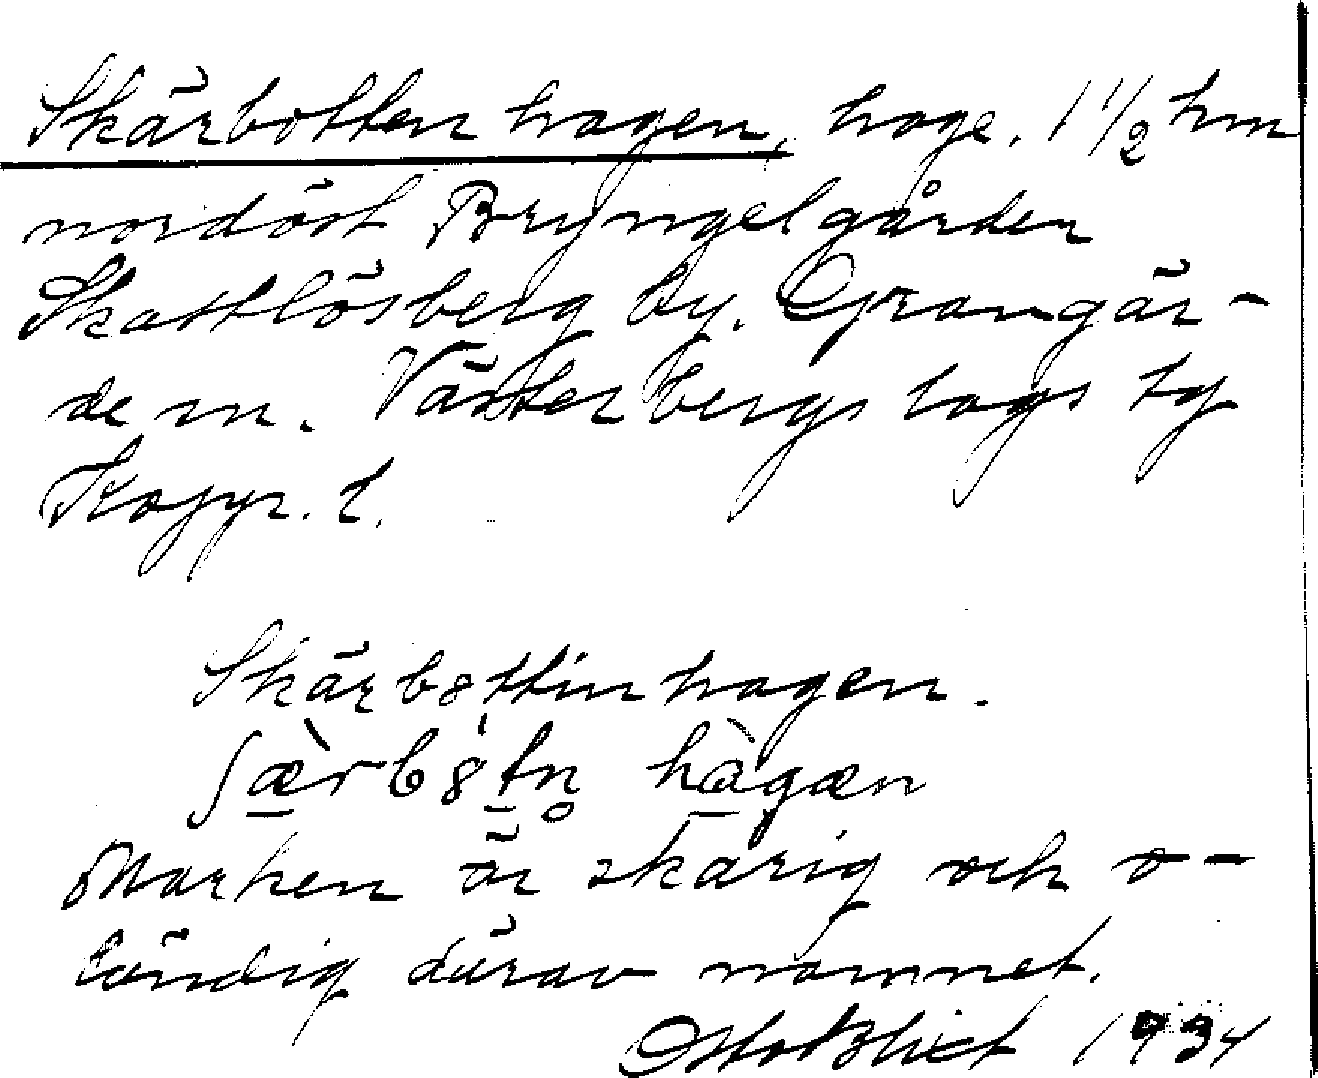 Skärbotten hagen, hage. 1 1/2 km
nordöst Bryngelgården
Skattlösberg by. Grangär-
de sn. Västerbergslags tg
Kopp. l.
Skärb8ttin hagen.
ʃæ̀rb8tn̥ hàgæn
Marken är skärig och o-
ländig därav namnet.
Otto Blixt 1934